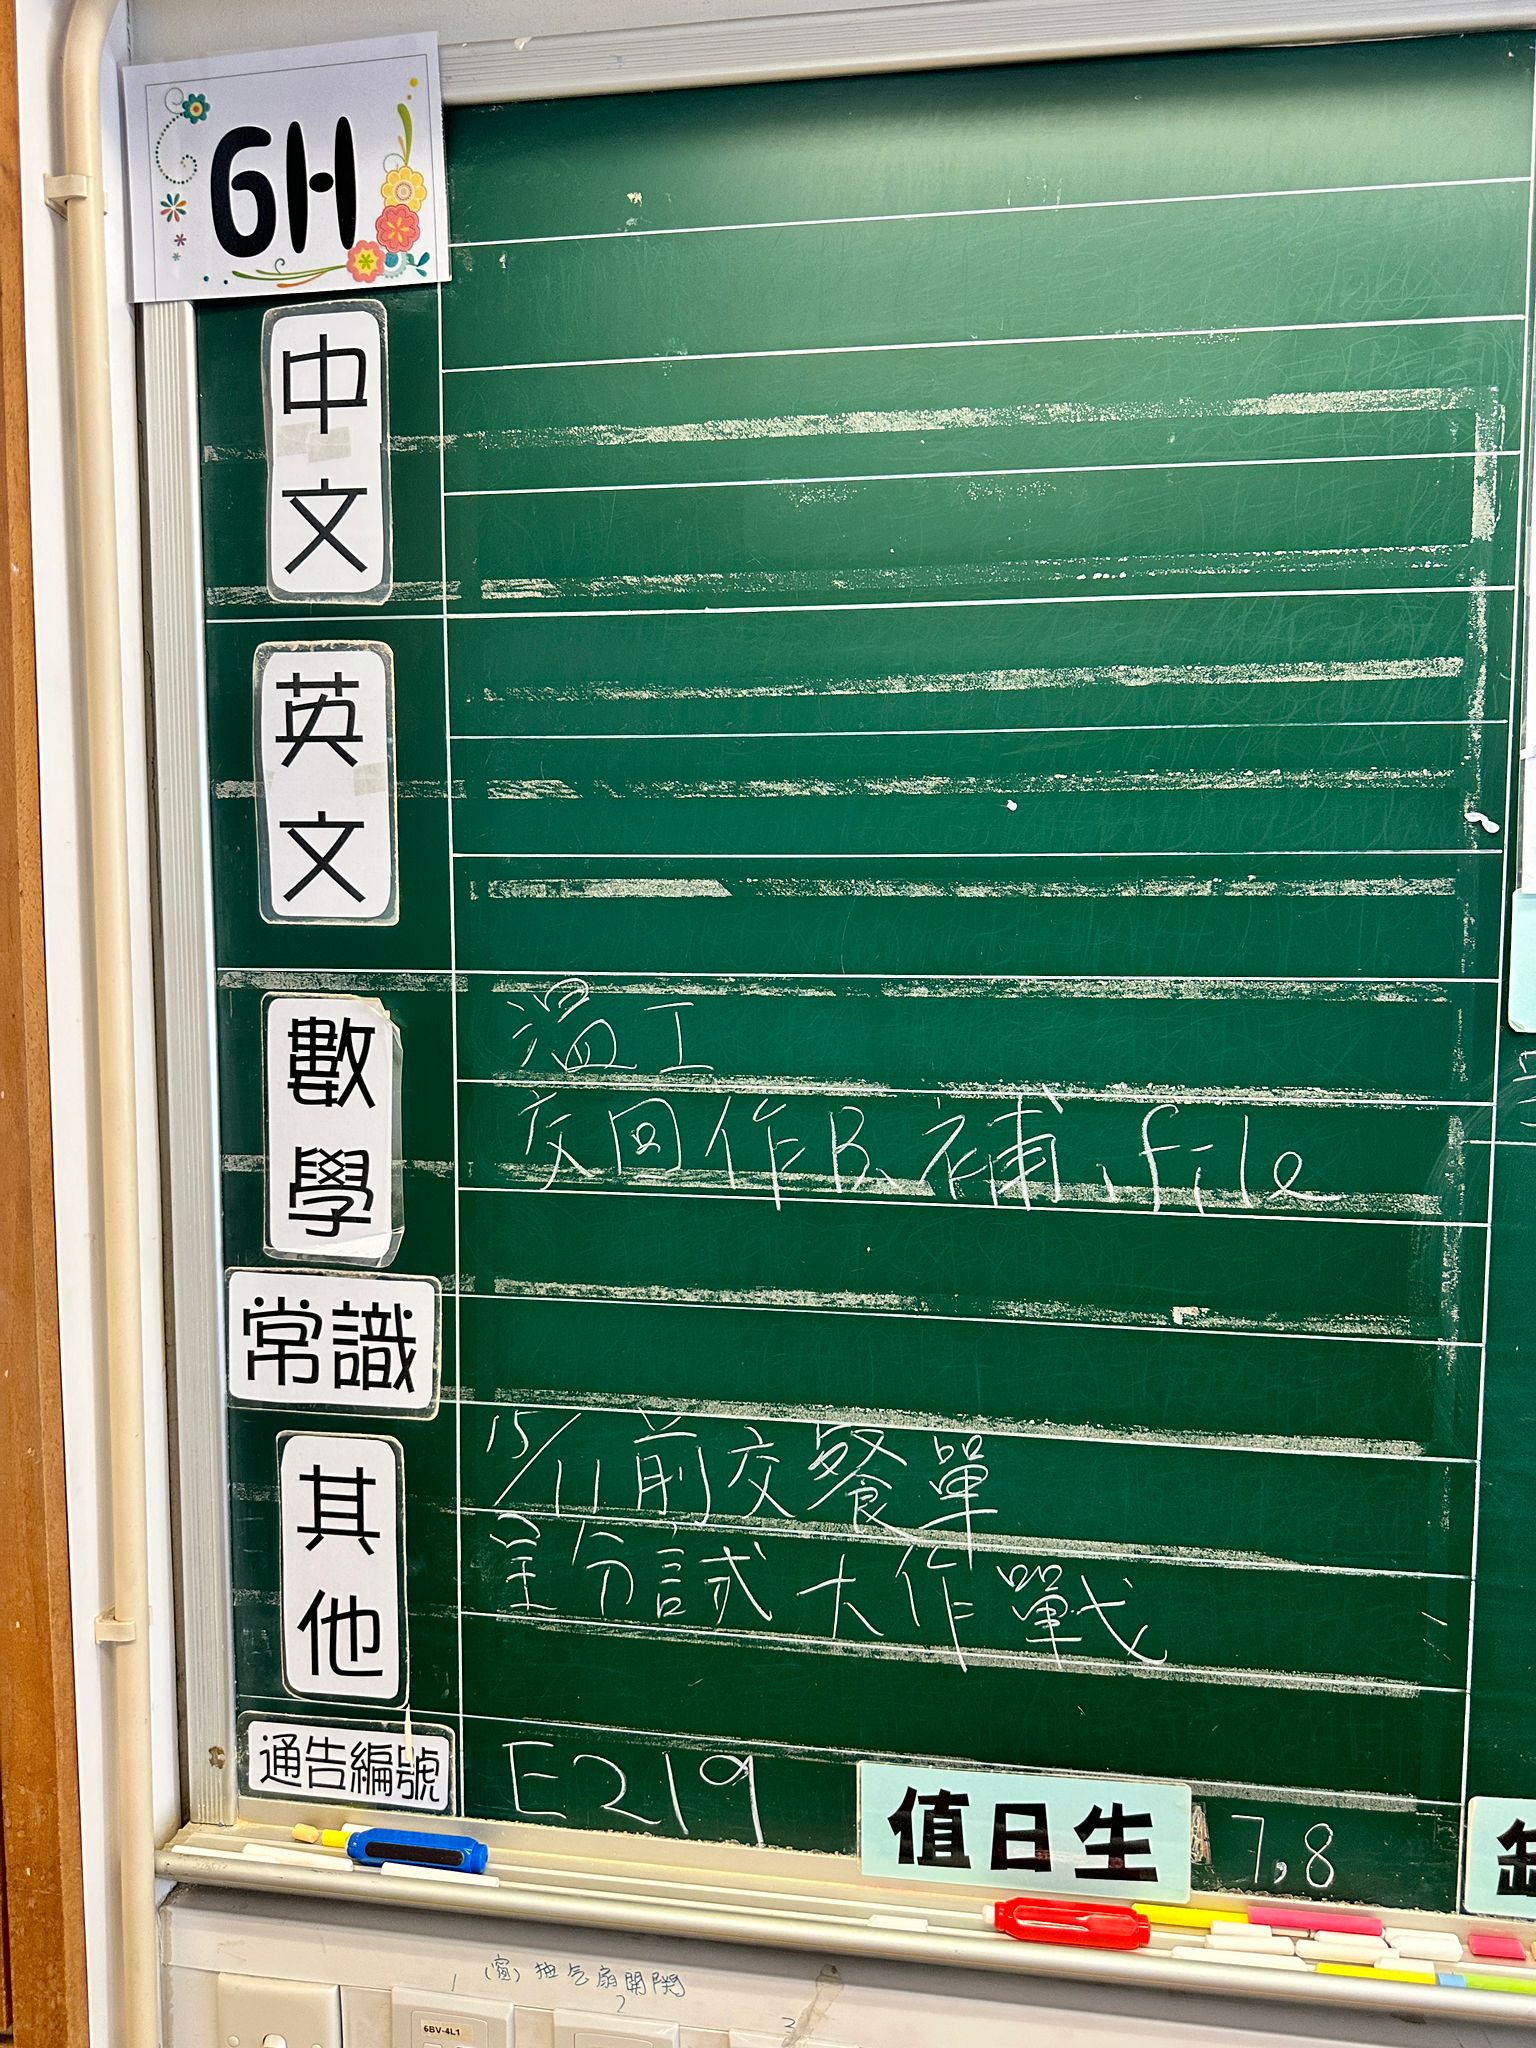 6H
中文
英文
數學
溫工
交回作B、補、file
常識
其他
15/11前交餐單
呈分試大作戰
通告編號
E219
值日生
7,8
(窗) 抽气扇開関
1
2
3
6BV-4L1